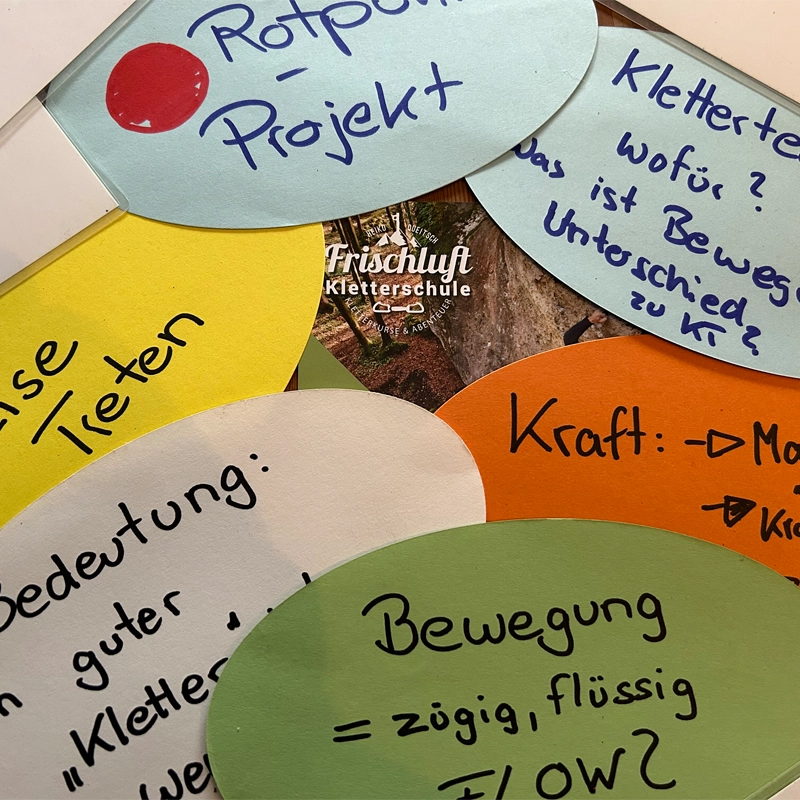 Rotpunkt
-
Projekt
Kletterte
wofür?
was ist Beweg
Unterschied
zu KT?
HEIKO QUEITSCH
Frischluft
Kletterschule
KLETTERKURSE & ABENTEUER
Treten
Kraft:
Bedeutung:
guter
"Kletter
Bewegung
= zügig, flüssig
FLOW?